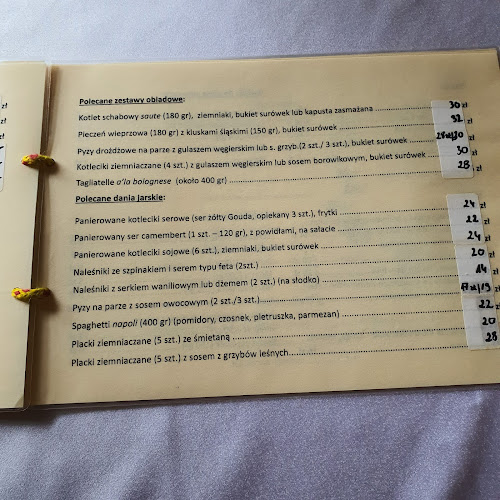 Polecane zestawy obiadowe:
Kotlet schabowy saute (180 gr), ziemniaki, bukiet surówek lub kapusta zasmażana 30 zł
Pieczeń wieprzowa (180 gr) z kluskami śląskimi (150 gr), bukiet surówek 32 zł
Pyzy drożdżowe na parze z gulaszem węgierskim lub s. grzyb.(2 szt./ 3 szt.), bukiet surówek 28zł/30 zł
Kotleciki ziemniaczane (4 szt.) z gulaszem węgierskim lub sosem borowikowym, bukiet surówek 30 zł
Tagliatelle a'la bolognese (około 400 gr) 28 zł
Polecane dania jarskie:
Panierowane kotleciki serowe (ser żółty Gouda, opiekany 3 szt.), frytki 24 zł
Panierowany ser camembert (1 szt. – 120 gr), z powidłami, na sałacie 22 zł
Panierowane kotleciki sojowe (6 szt.), ziemniaki, bukiet surówek 24 zł
Naleśniki ze szpinakiem i serem typu feta (2szt.) 20 zł
Naleśniki z serkiem waniliowym lub dżemem (2 szt.) (na słodko) 14 zł
Pyzy na parze z sosem owocowym (2 szt./3 szt.) 17zł/19 zł
Spaghetti napoli (400 gr) (pomidory, czosnek, pietruszka, parmezan) 22 zł
Placki ziemniaczane (5 szt.) ze śmietaną 20 zł
Placki ziemniaczane (5 szt.) z sosem z grzybów leśnych 28 zł